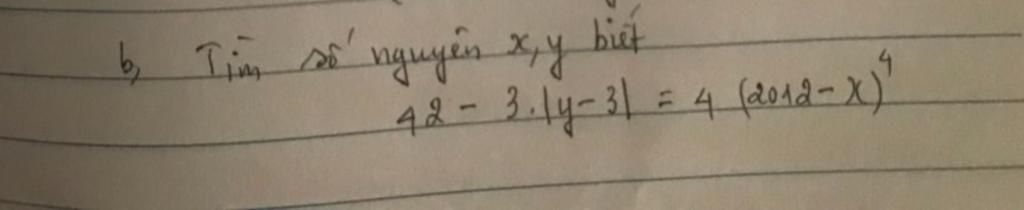 b, Tìm số nguyên x, y biết
42 - 3.|y-3| = 4 (2012-x)⁴